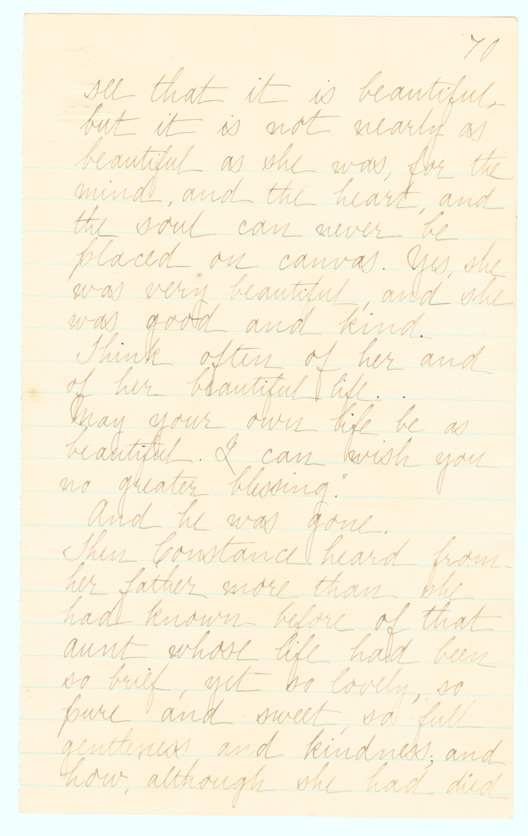 70
see that it is beautiful,
but it is not nearly as
beautiful as she was, for the
mind, and the heart, and
the soul can never be
placed on canvas. Yes, she
was very beautiful, and she
was good and kind.
Think often of her and
of her beautiful life. .
May your own life be as
beautiful. I can wish you
no greater blessing."
And he was gone.
Then Constance heard from
her father more than she
had known before of that
aunt whose life had been
so brief, yet so lovely, so
pure and sweet, so full
gentleness and kindness, and
how, although she had died